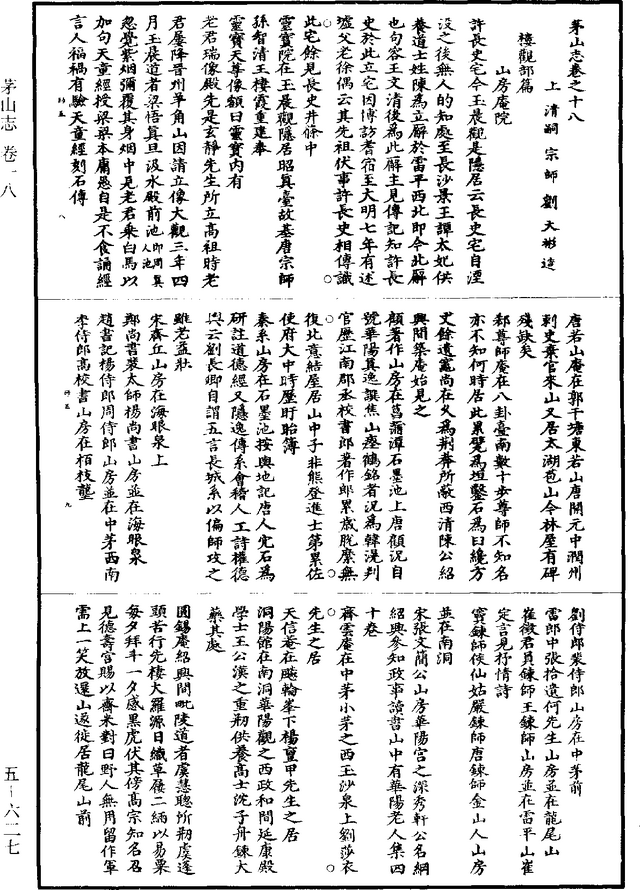 茅山志卷之十八
上清嗣宗師劉大彬造
樓觀部篇
山房庵院
許長史宅今玉晨觀是隱居云長史宅自湮
没之後無人的知處至長沙景王譚太妃供
養道士姓陳為立廨於雷平西北即今此廨
也句容王文清後為此廨主見傳記知許長
史於此立宅因博訪耆宿至大明七年有述
墟父老徐偶云其先祖伏事許長史相傳識
此宅餘見長史井條中
靈寶院在玉晨觀隱居昭真臺故基唐宗師
孫智清王棲霞重建奉
靈寶天尊像額曰靈寶內有
老君瑞像殿先是玄靜先生所立高祖時老
君屢降晉州羊角山因請立像大觀三年四
月玉晨道者梁悟真旦汲水殿前池即周真人池
忽覺紫烟彌覆其身烟中見老君乘白馬以
加句天童經授梁梁本庸愚自是不食誦經
言人福禍有驗天童經刻石傳
唐若山庵在郭千塘東若山唐開元中潤州
刺史棄官來山又居太湖苞山今林屋有碑
殘缺矣
郄尊師庵在八卦臺南數十步尊師不知名
亦不知何時居此累甓為壇鑿石為臼纔方
丈餘遺竈尚在久為荆莽所蔽西清陳公紹
興間築庵始見之
顧著作山房在菖蒲潭石墨池上唐顧況自
號華陽真逸譔焦山瘞鶴銘者況為韓滉判
官歷江南郡丞校書郎著作郎累歲脱縻無
復北意結屋居山中子非熊登進士第累佐
使府大中時歷盱眙簿
秦系山房在石墨池按輿地記唐人穴石為
研註道德經又隱逸傳系會稽人工詩權德
輿云劉長卿自謂五言長城系以偏師攻之
雖老益壯
宋齊丘山房在海眼泉上
鄭尚書裴太師楊尚書山房並在海眼泉
趙書記楊侍郎周侍郎山房並在中茅西南
李侍郎高校書山房在栢枝壟
劉侍郎柴侍郎山房在中茅前
雷郎中張拾遺何先生山房並在龍尾山
崔徵君員鍊師王鍊師山房並在雷平山崔
定言見抒情詩
竇鍊師俠仙姑嚴鍊師唐鍊師金山人山房
並在南洞
宋張文簡公山房華陽宫之深秀軒公名綱
紹興參知政事讀書山中有華陽老人集四
十卷
齊雲庵在中茅小茅之西玉沙泉上劉莎衣
先生之居
天信菴在颴輪峯下楊璽甲先生之居
洞陽館在南洞華陽觀之西政和間延康殿
學士王公漢之重剏供養高士沈子舟鍊大
藥其處
圓錫庵紹興間毗陵道者虞慧聰所剏虔逢
頭苦行先棲大羅源日織草屨二緉以易粟
每夕拜斗一夕感黑虎伏其傍高宗知名召
見德壽宫賜以齋米對曰野人無用留作軍
需上一笑放還山返徙居龍尾山前
茅山志 卷一八
五－六二七